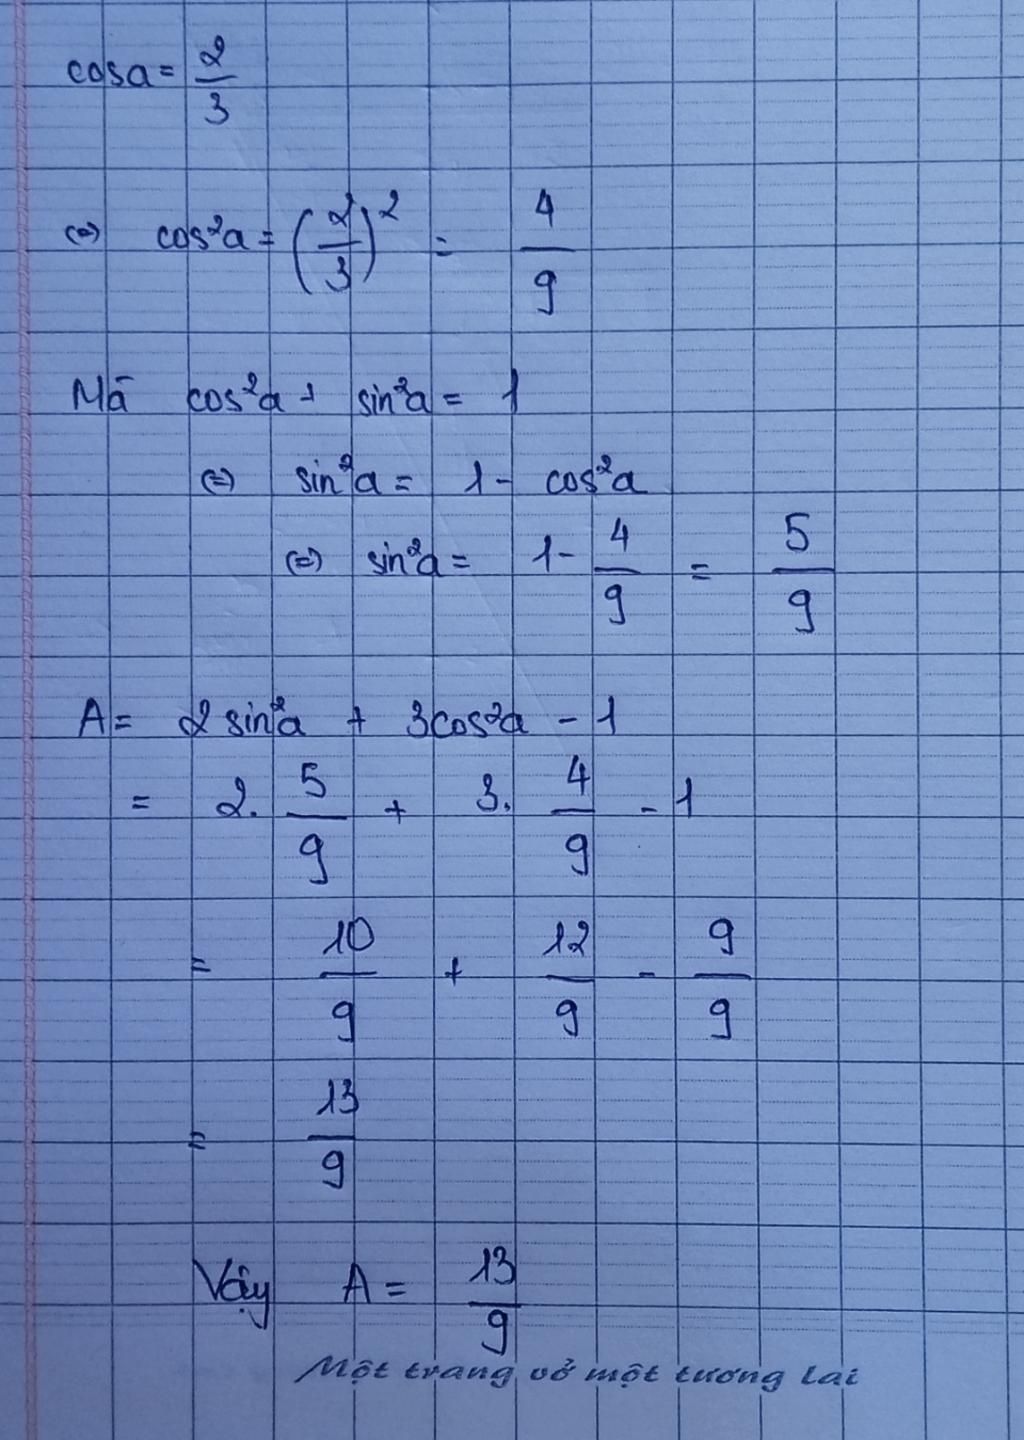 cosa = 2/3
(=) cos²a = (2/3)² = 4/9
Mà cos²a + sin²a = 1
(=) sin²a = 1 - cos²a
(=) sin²a = 1 - 4/9 = 5/9
A = 2 sin²a + 3cos²a - 1
= 2. 5/9 + 3. 4/9 - 1
= 10/9 + 12/9 - 9/9
= 13/9
Vậy A = 13/9
Một trang vở một tương lai